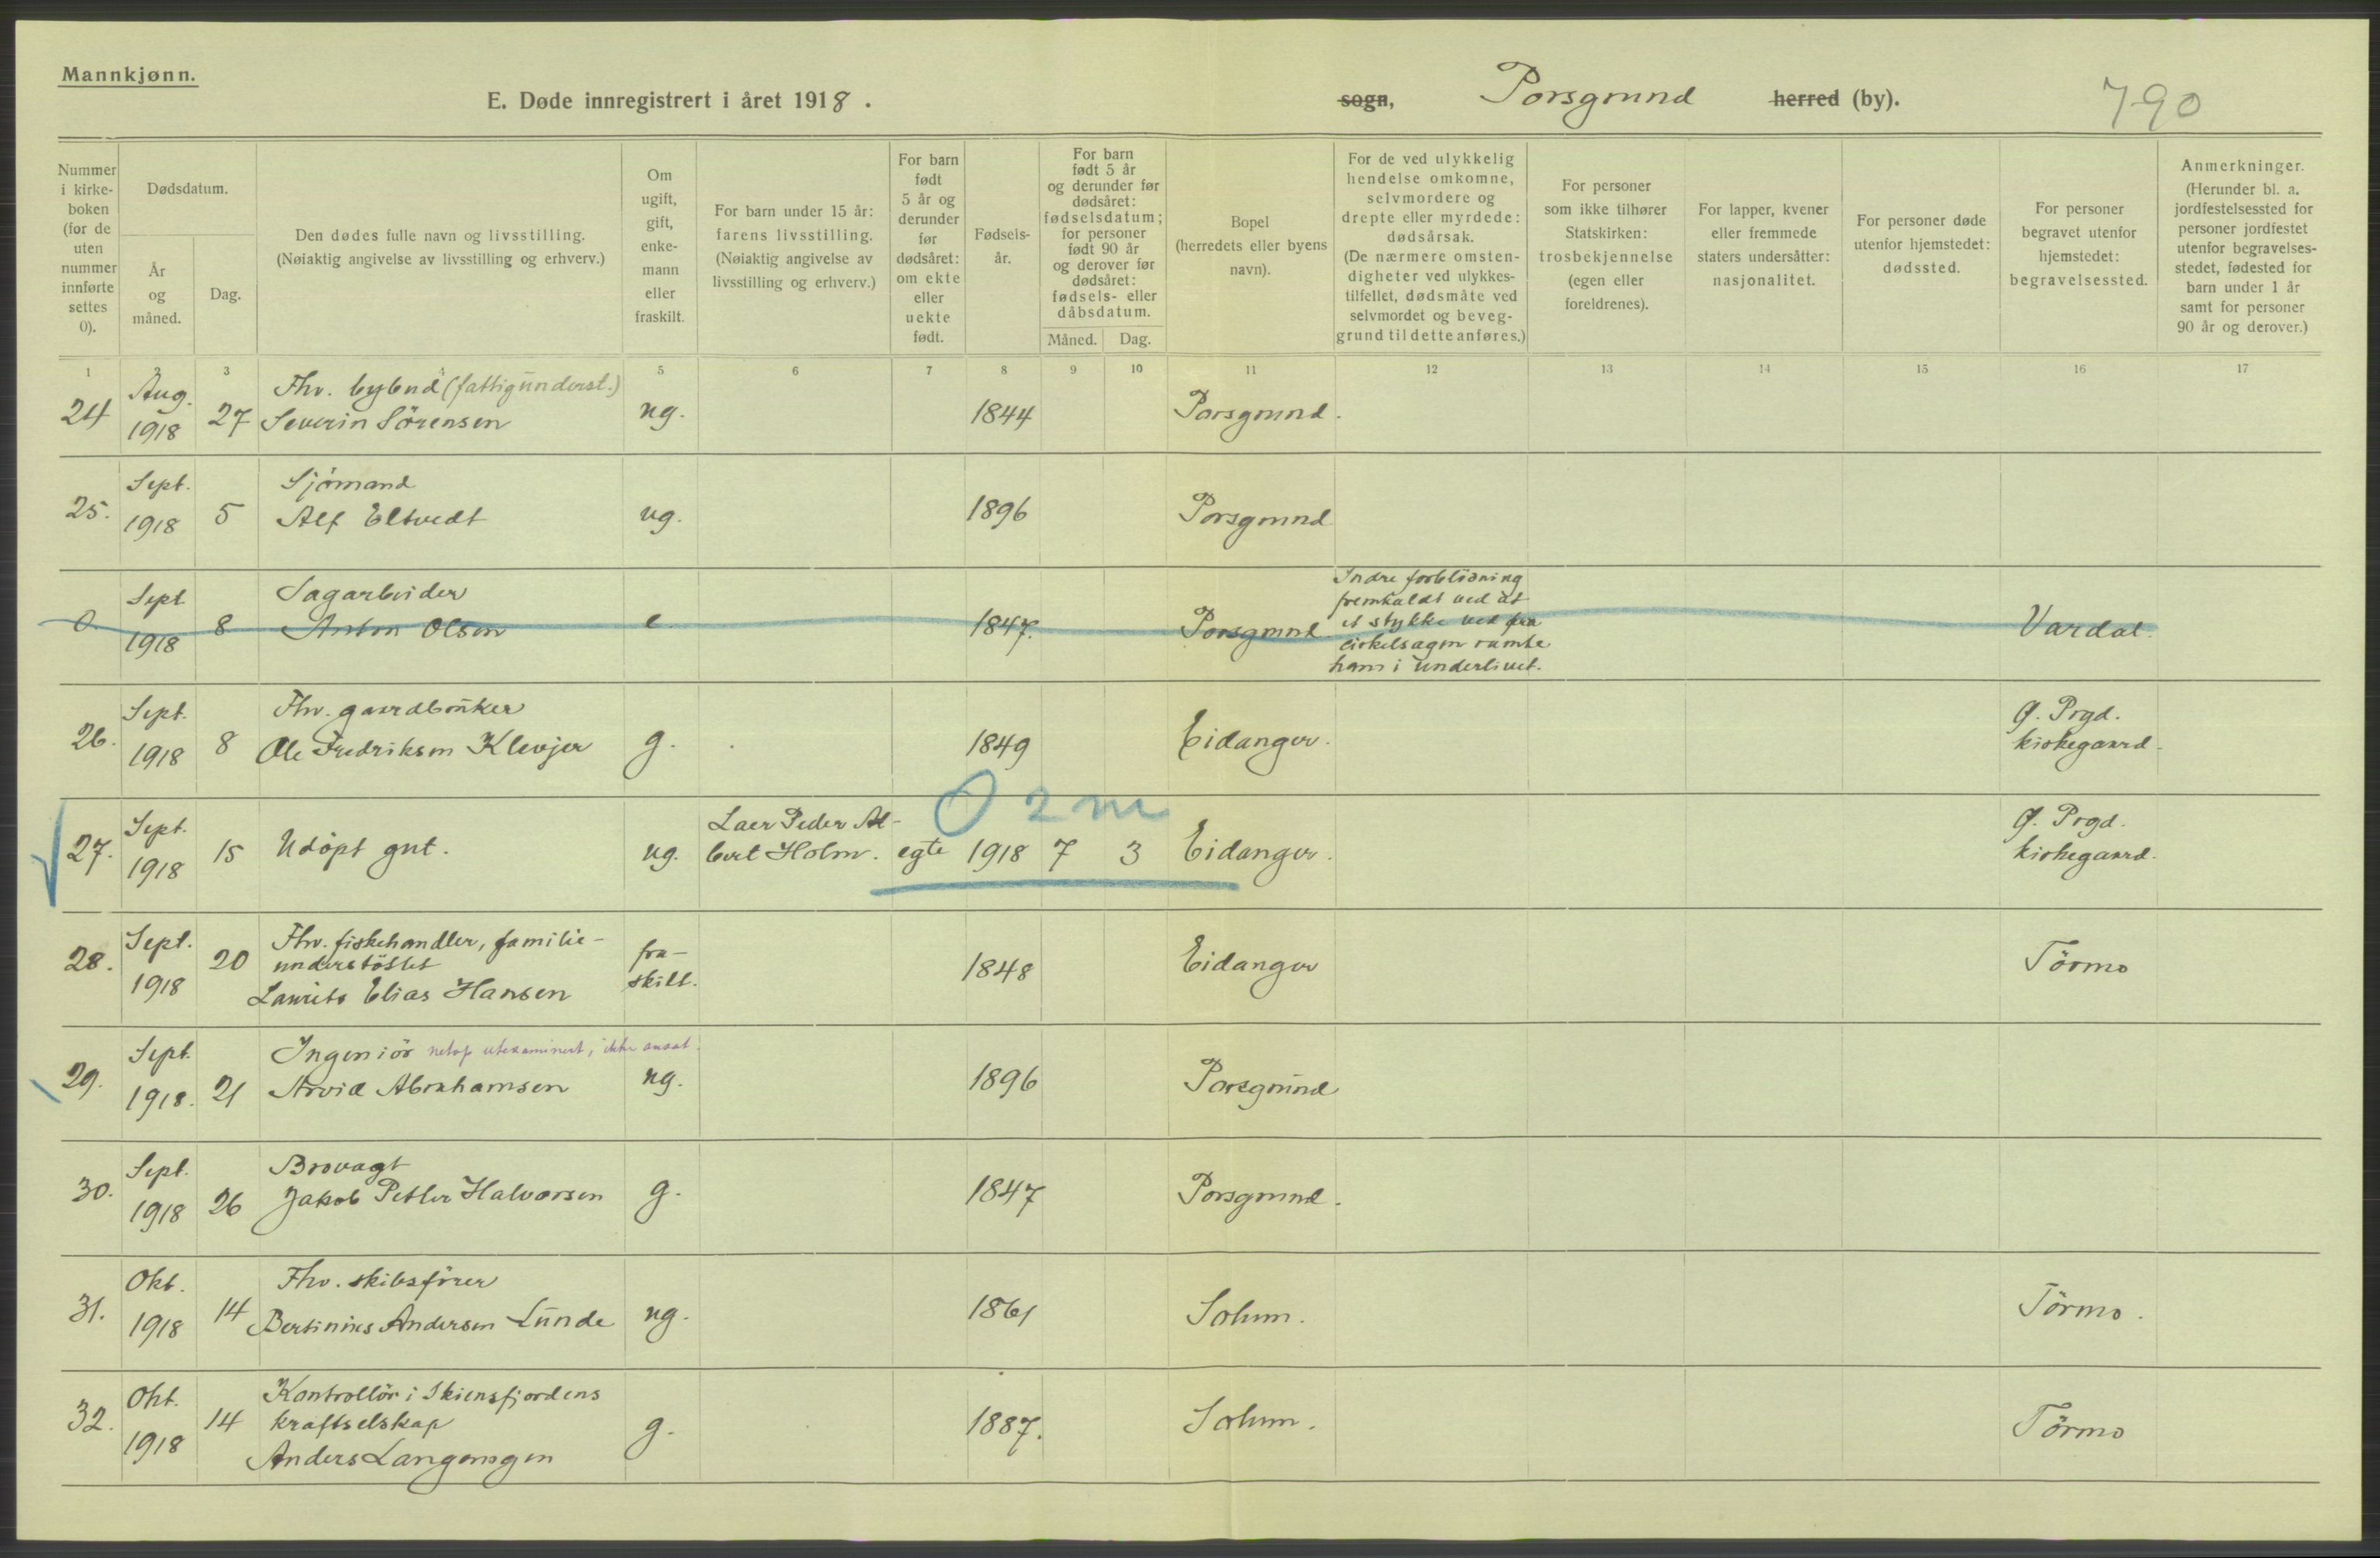 Mannkjønn.
E. Døde innregistrert i året 1918.
sogn, Porsgrund herred (by).
790
Nummer i kirke- boken (for de uten nummer innførte settes 0).
Dødsdatum.
År og måned.
Dag.
Den dødes fulle navn og livsstilling.
(Nøiaktig angivelse av livsstilling og erhverv.)
Om ugift, gift, enke- mann eller fraskilt.
For barn under 15 år: farens livsstilling.
(Nøiaktig angivelse av livsstilling og erhverv.)
For barn født 5 år og derunder før dødsåret: om ekte eller uekte født.
Fødsels- år.
For barn født 5 år og derunder før dødsåret: fødselsdatum; for personer født 90 år og derover før dødsåret: fødsels- eller dåbsdatum.
Måned. Dag.
Bopel (herredets eller byens navn).
For de ved ulykkelig hendelse omkomne, selvmordere og drepte eller myrdede: dødsårsak.
(De nærmere omsten- digheter ved ulykkes- tilfellet, dødsmåte ved selvmordet og beveg- grund til dette anføres.)
For personer som ikke tilhører Statskirken: trosbekjennelse (egen eller foreldrenes).
For lapper, kvener eller fremmede staters undersåtter: nasjonalitet.
For personer døde utenfor hjemstedet: dødssted.
For personer begravet utenfor hjemstedet: begravelsessted.
Anmerkninger.
(Herunder bl. a. jordfestelsessted for personer jordfestet utenfor begravelses- stedet, fødested for barn under 1 år samt for personer 90 år og derover.)
1 2 3 5 6 7 8 9 10 11 12 13 14 15 16 17
24 Aug. 1918 27 Fhv. bybud (fattigunderst.)
Severin Sörensen ug. 1844 Porsgrund.
25. Sept. 1918 5 Sjömand
Alf Eltvedt ug. 1896 Porsgrund
0. Sept 1918 8 Sagarbeider
Anton Olsen e. 1847. Porsgrund.
Indre forblödning
fremkaldt ved at
et stykke ved fra
cirkelsagen ramte
ham i underlivet.
Vardal.
26. Sept. 1918 8 Fhv. gaardbruker
Ole Fredriksen Klevjer g. 1849 Eidanger.
G. Prgd.
kirkegaard.
0 2 m
27. Sept. 1918 15 Udöpt gut. ug.
Laer Peder Al-
bert Holm. egte 1918 7 3 Eidanger.
G. Prgd.
kirkegaard.
28. Sept. 1918 20 Fhv. fiskehandler, familie-
understöttet
Laurits Elias Hansen
fra-
skilt. 1848 Eidanger Törmo
29. Sept. 1918. 21 Ingeniör netop uteksaminert, ikke ansat.
Arvid Abrahamsen ug. 1896 Porsgrund
30. Sept. 1918 26 Brovagt
Jakob Petter Halvorsen g. 1847 Porsgrund.
31. Okt. 1918 14 Fhv. skibsförer
Bertinius Andersen Lunde ug. 1861 Solum. Törmo.
32. Okt. 1918 14 Kontrollör i Skiensfjordens
kraftselskap
Anders Langangen g. 1887. Solum. Törmo